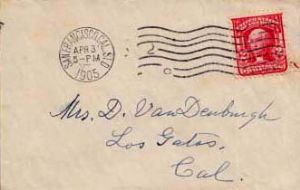 SAN FRANCISCO, CAL. STA. D
APR 3
5-PM
1905
2
Mrs. D. VanDenburgh
Los Gatos,
Cal.